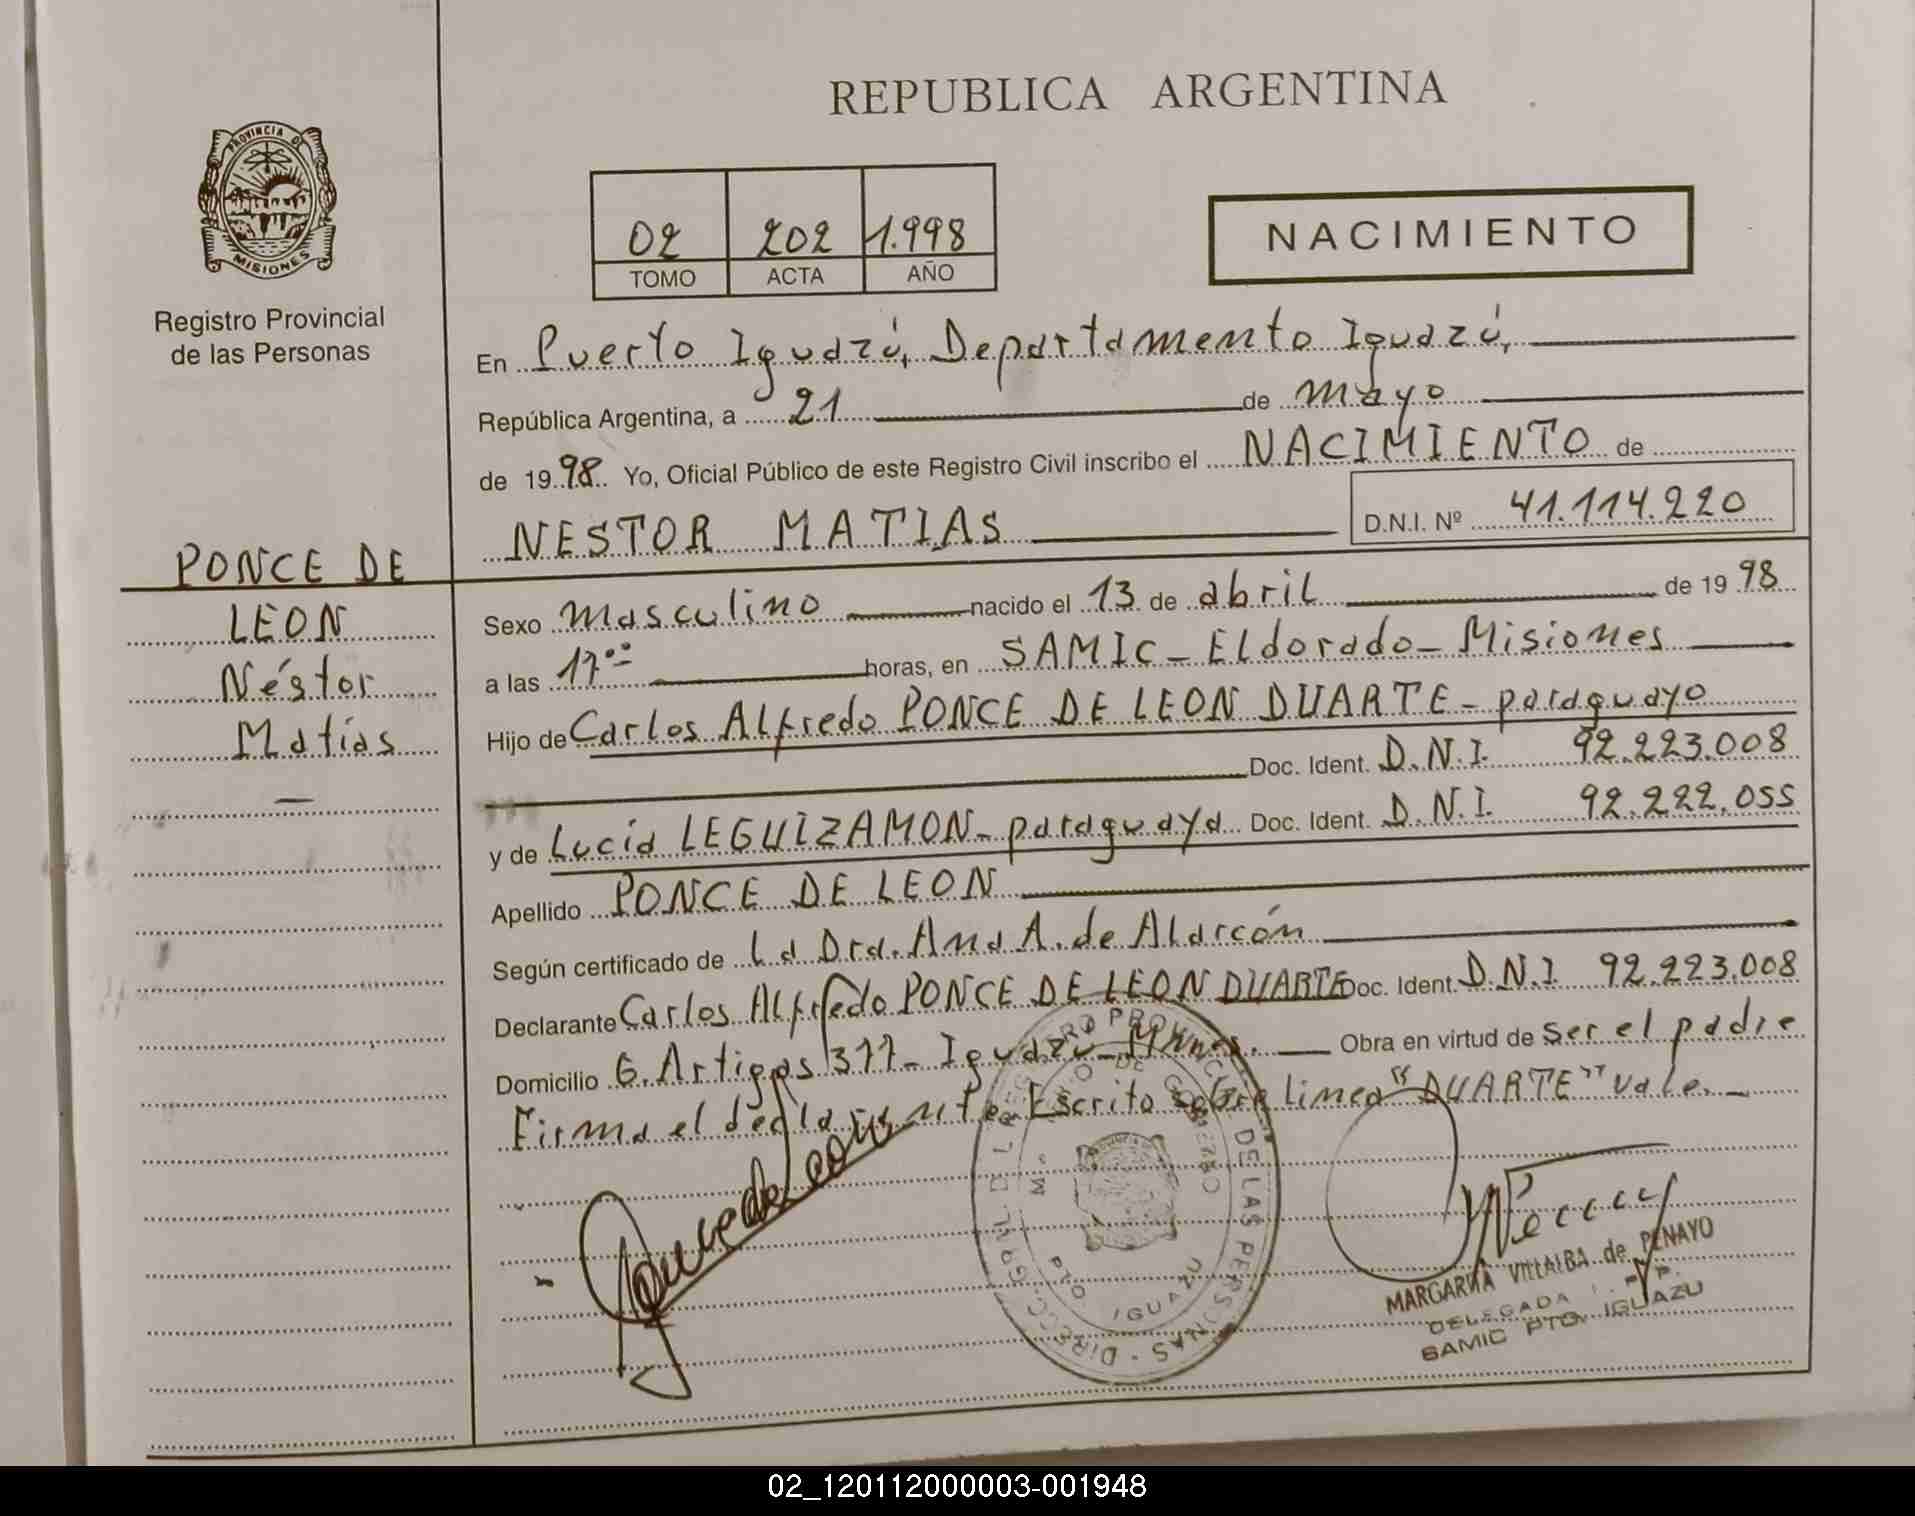 REPUBLICA ARGENTINA
PROVINCIA DE
MISIONES
Registro Provincial
de las Personas
02 202 1.998
TOMO ACTA AÑO
NACIMIENTO
En Puerto Iguazú, Departamento Iguazú,
República Argentina, a 21 de mayo
de 1998 Yo, Oficial Público de este Registro Civil inscribo el NACIMIENTO de
NESTOR MATIAS D.N.I. Nº 41.114.220
PONCE DE
LEON
Néstor
Matías
Sexo masculino nacido el 13 de abril de 1998
a las 17⁰⁰ horas, en SAMIC - Eldorado - Misiones
Hijo de Carlos Alfredo PONCE DE LEON DUARTE - paraguayo
Doc. Ident. D.N.I. 92.223.008
y de Lucia LEGUIZAMON - paraguaya Doc. Ident. D.N.I. 92.222.055
Apellido PONCE DE LEON
Según certificado de La Dra. Ana A. de Alarcón
Declarante Carlos Alfredo PONCE DE LEON DUARTE Doc. Ident. D.N.I. 92.223.008
Domicilio G. Artigas 377 - Iguazú - Mnes. Obra en virtud de ser el padre
Firma el declarante. Escrito sobre linea "DUARTE" vale.
PROVINCIAL DE LAS PERSONAS
DE GOBIERNO
PTO. IGUAZU
MARGARITA VILLALBA de PENAYO
DELEGADA
SAMIC PTO. IGUAZU
02_120112000003-001948